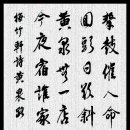 擊鼓催人命
回頭日欲斜
黃泉無一店
今夜宿誰家
梅竹軒詩黃泉路